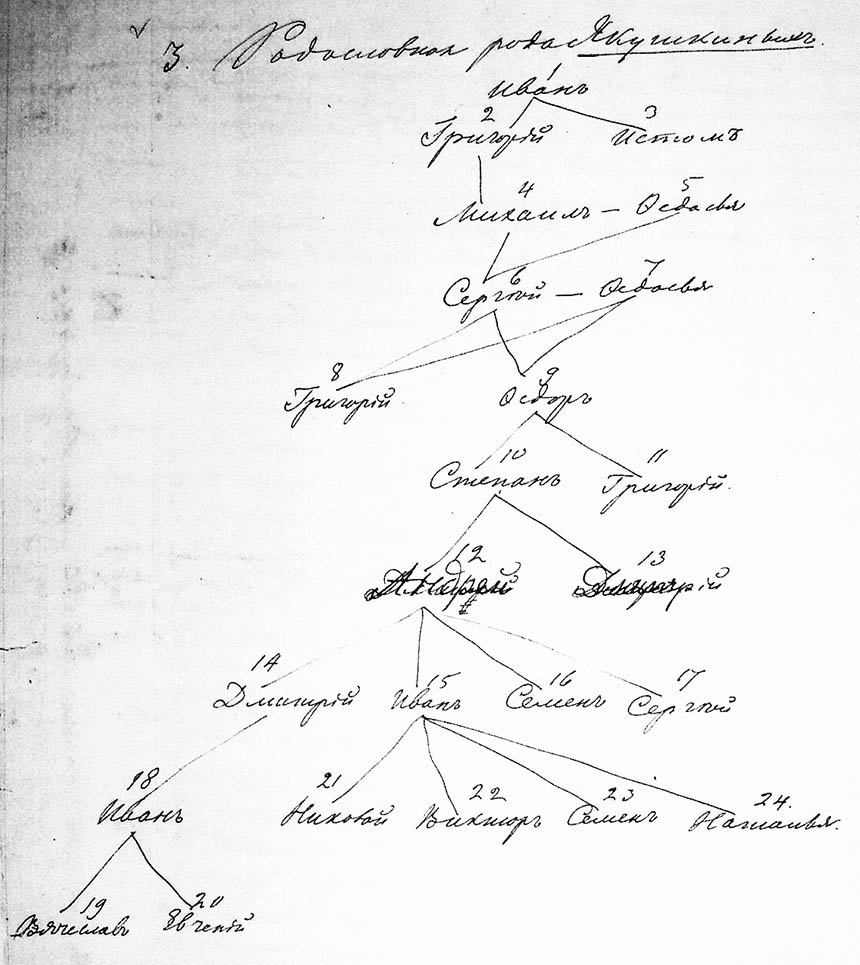 3. Родословная рода Якушкиныхъ.
1
Иванъ
2 3
Григорій Истома
4 5
Михаилъ — Ѳедосья
6 7
Сергѣй — Ѳедосья
8 9
Григорій Ѳедоръ
10 11
Степанъ Григорій.
12 13
Андрей Дмитрій
14 15 16 17
Дмитрій Иванъ Семенъ Сергѣй
18 21 22 23 24.
Иванъ Николай Викторъ Семенъ Наталья.
19 20
Вячеславъ Евгеній